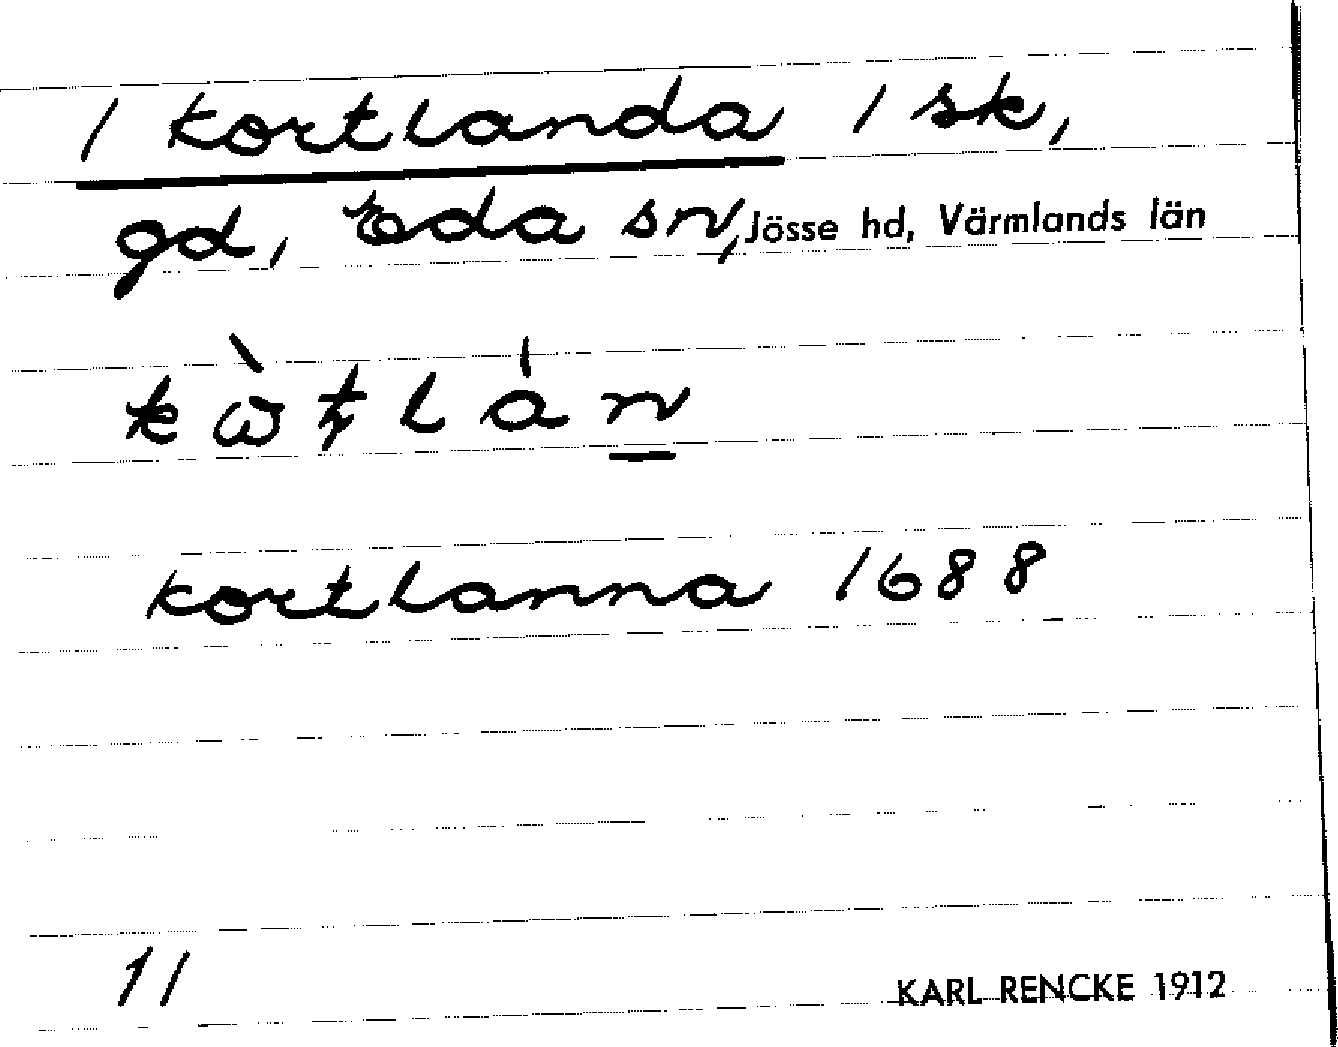 / kortlanda / sk,
gd, Eda sn, Jösse hd, Värmlands län
kortlanna 1688
11
KARL RENCKE 1912